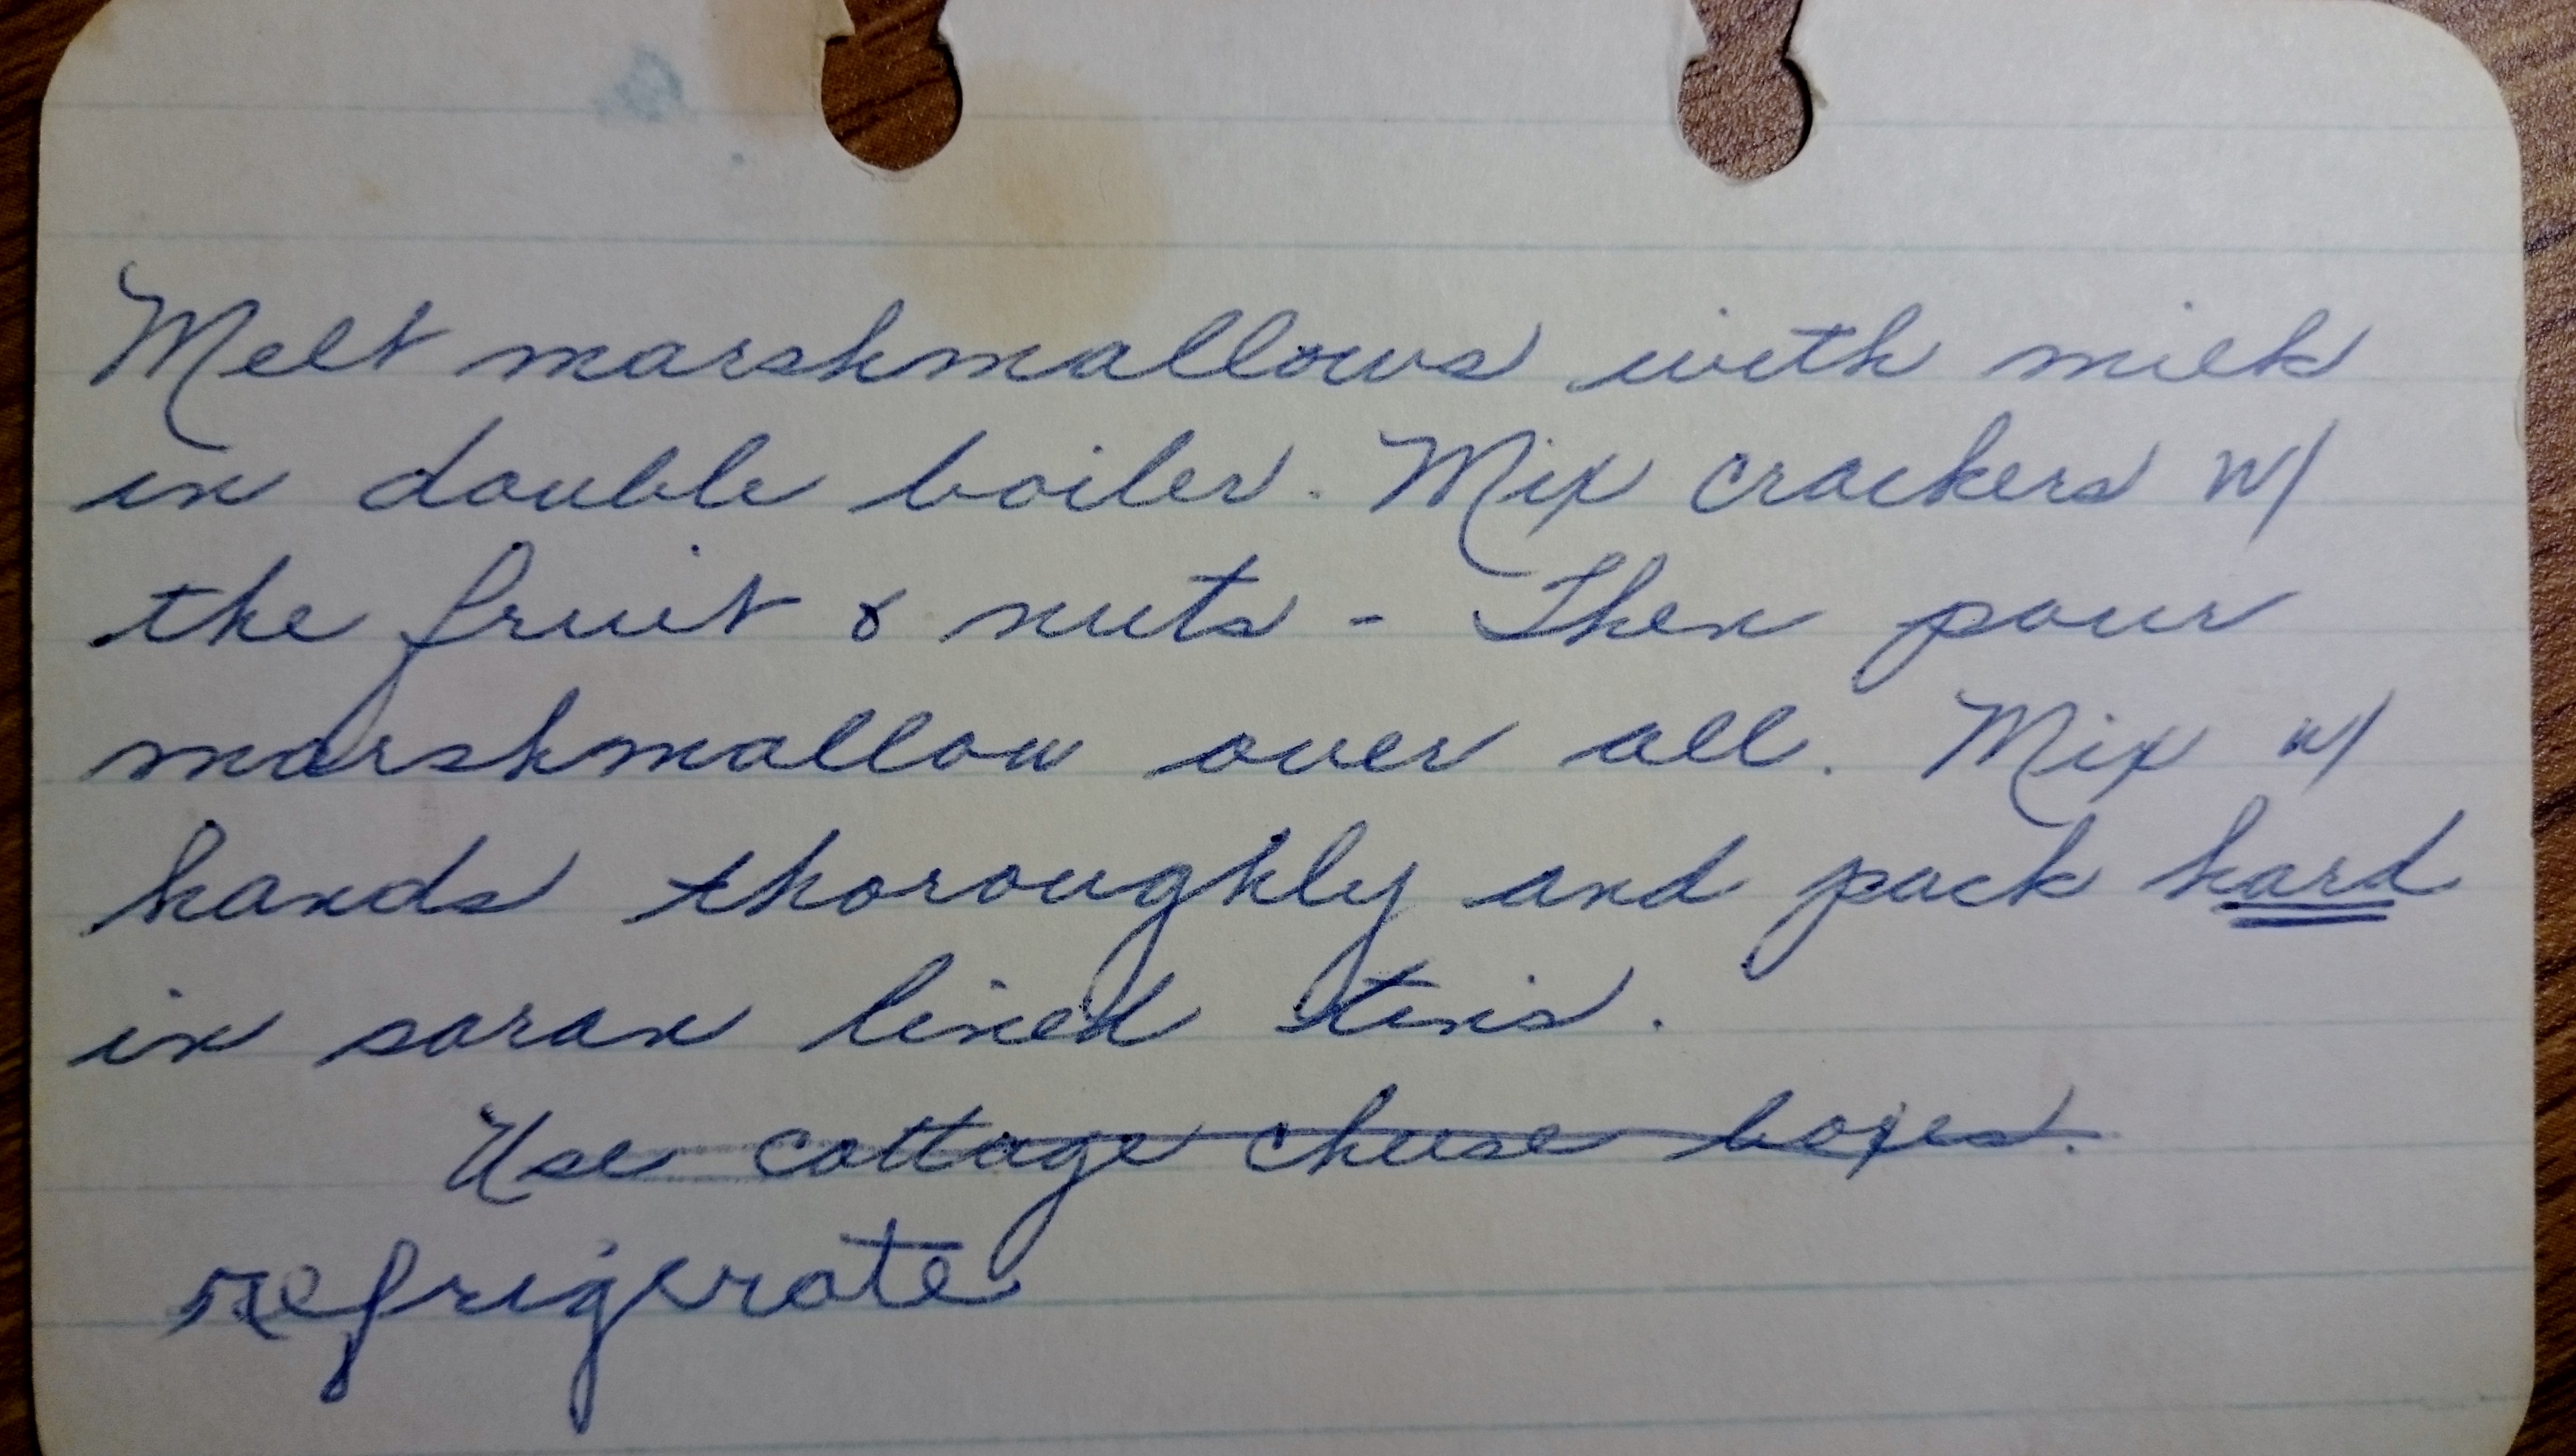 Melt marshmallows with milk
in double boiler. Mix crackers w/
the fruit & nuts - Then pour
marshmallow over all. Mix w/
hands thoroughly and pack hard
in saran lined tins.
Use cottage cheese boxes.
refrigerate